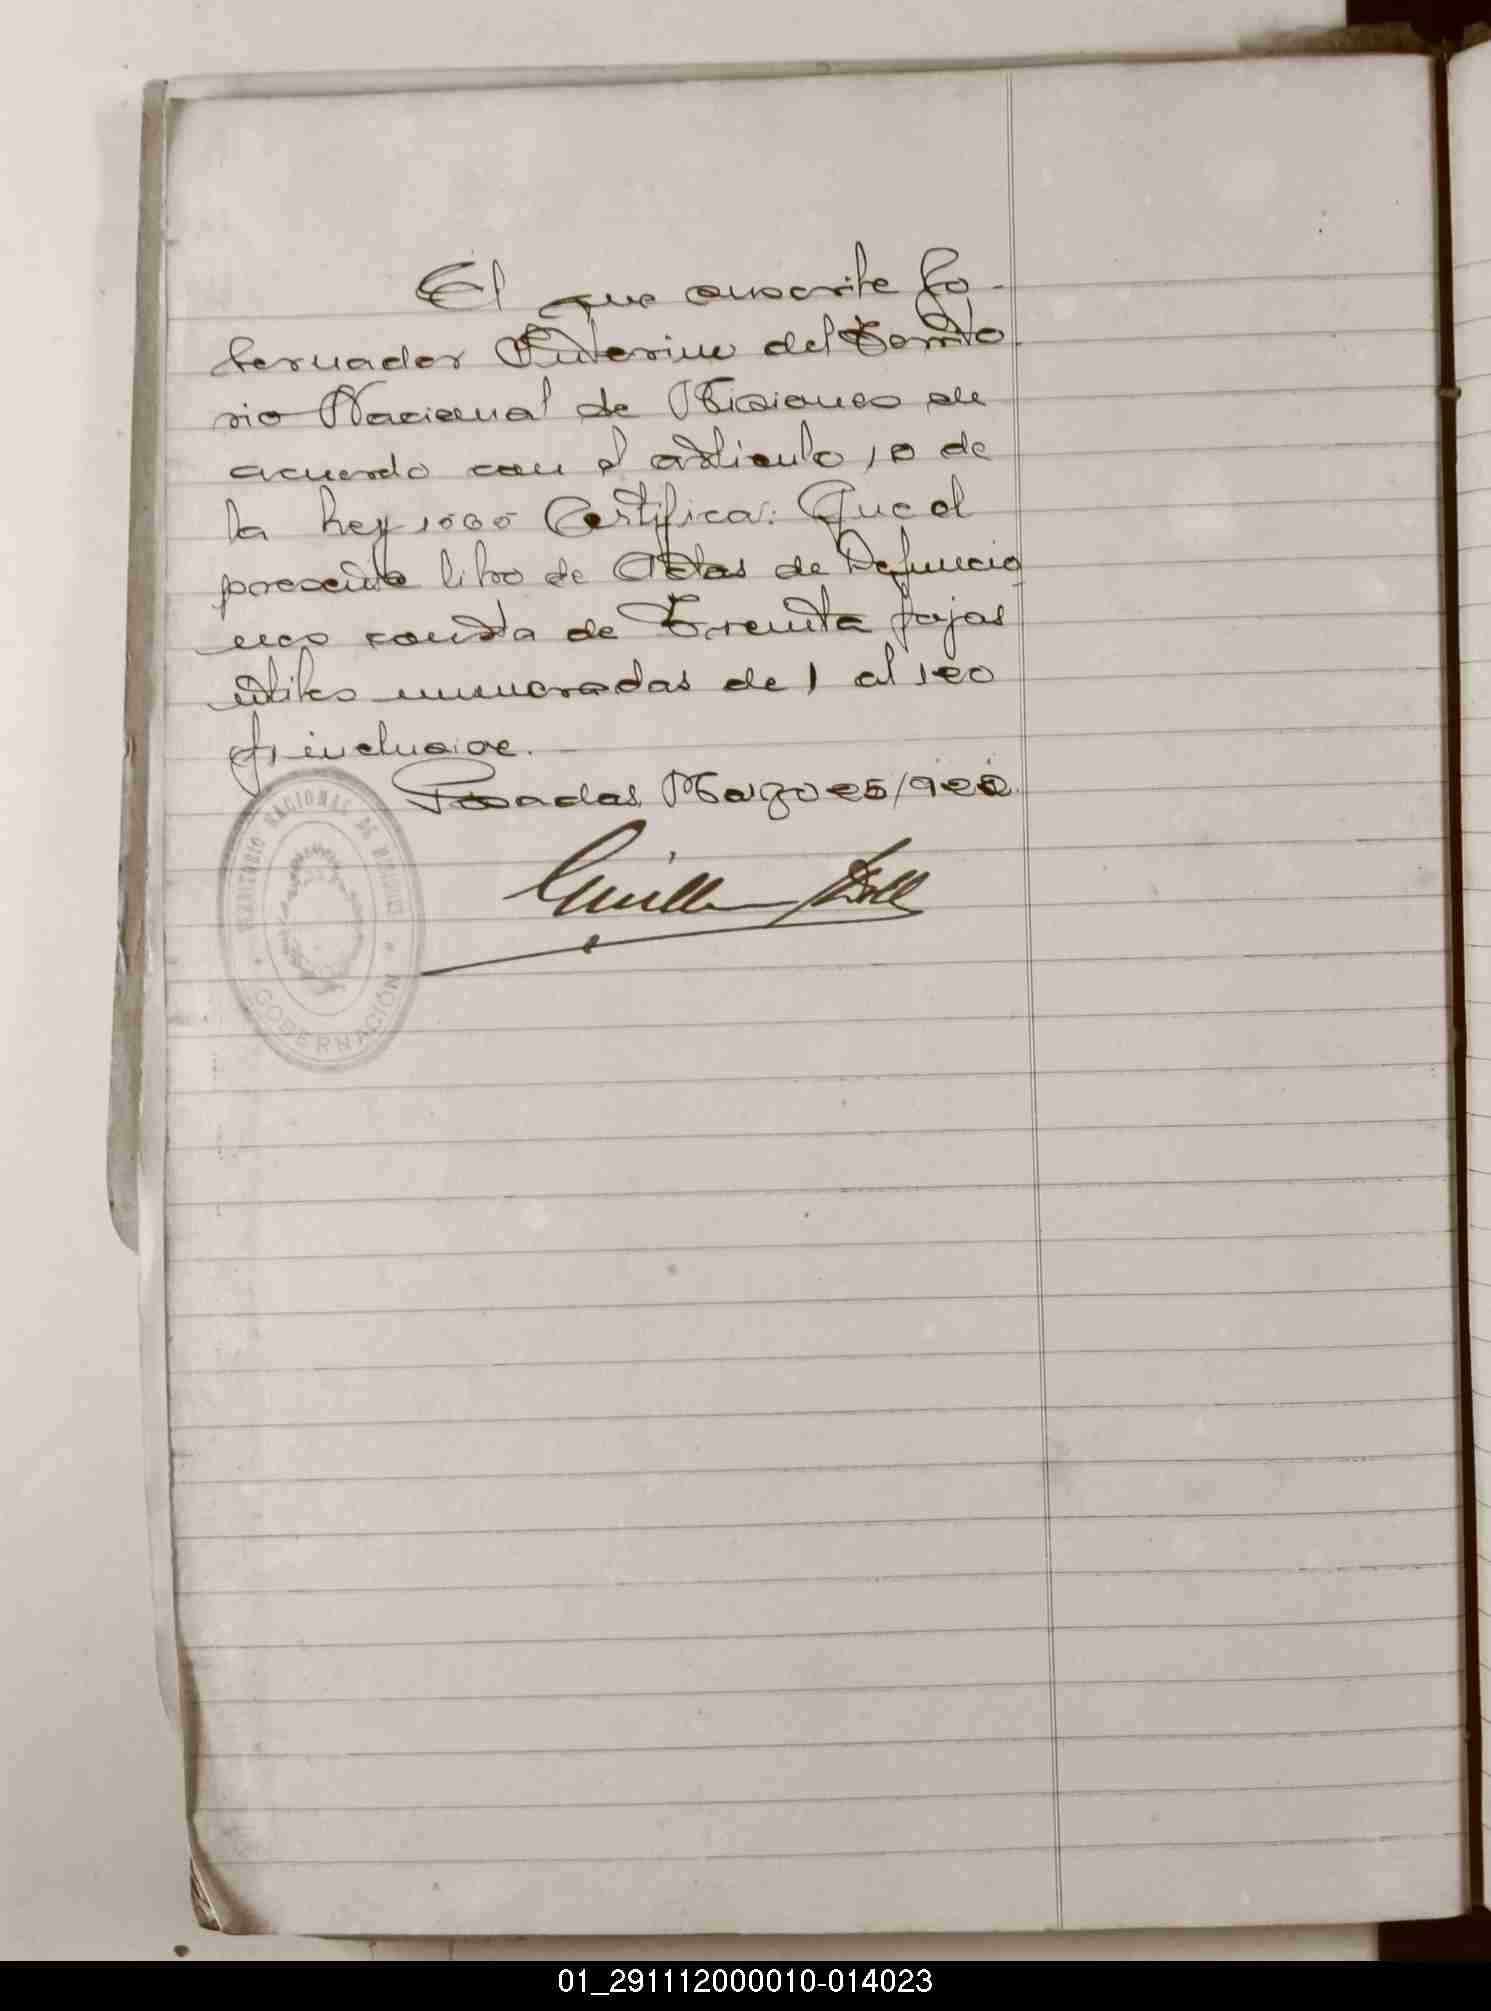 El que suscribe Go-
bernador Interino del Territo
rio Nacional de Misiones de
acuerdo con el artículo 10 de
la Ley 1565 Certifica: Que el
presente libro de Actas de Defuncio
nes consta de Treinta fojas
útiles numeradas de 1 al
inclusive.
Posadas, Marzo 25/922
TERRITORIO NACIONAL DE MISIONES
GOBERNACIÓN
01_291112000010-014023